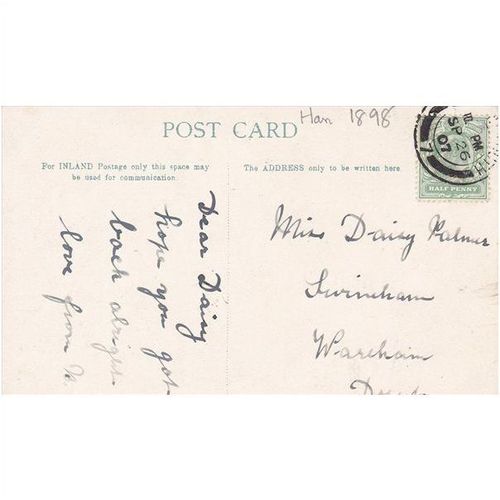 Han 1898
POST CARD
For INLAND Postage only this space may
be used for communication.
The ADDRESS only to be written here.
PM
SP 26
07
HALF PENNY
Dear Daisy
hope you got
back alright
love from
Miss Daisy Palmer
Swineham
Wareham